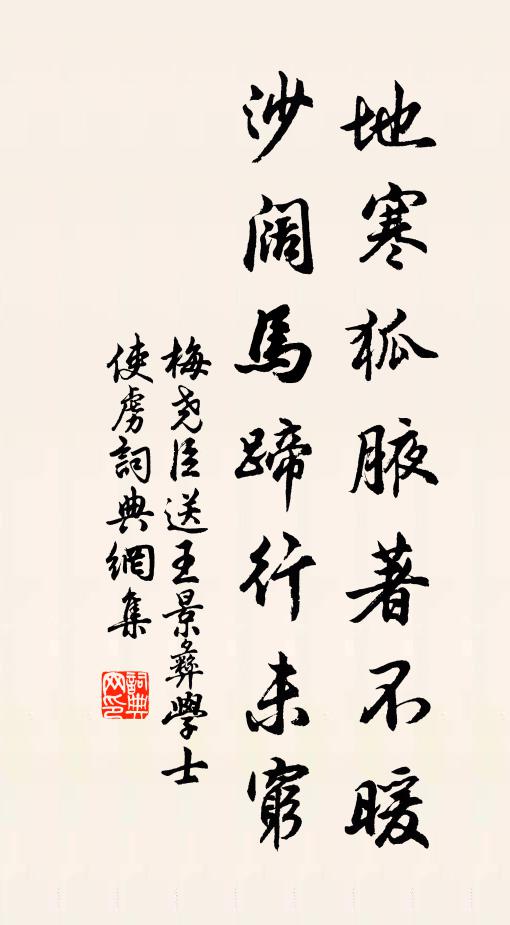 地寒狐腋著不暖
沙闊馬蹄行未窮
梅尧臣送王景彝學士
使虜詞典網集
詞典網印